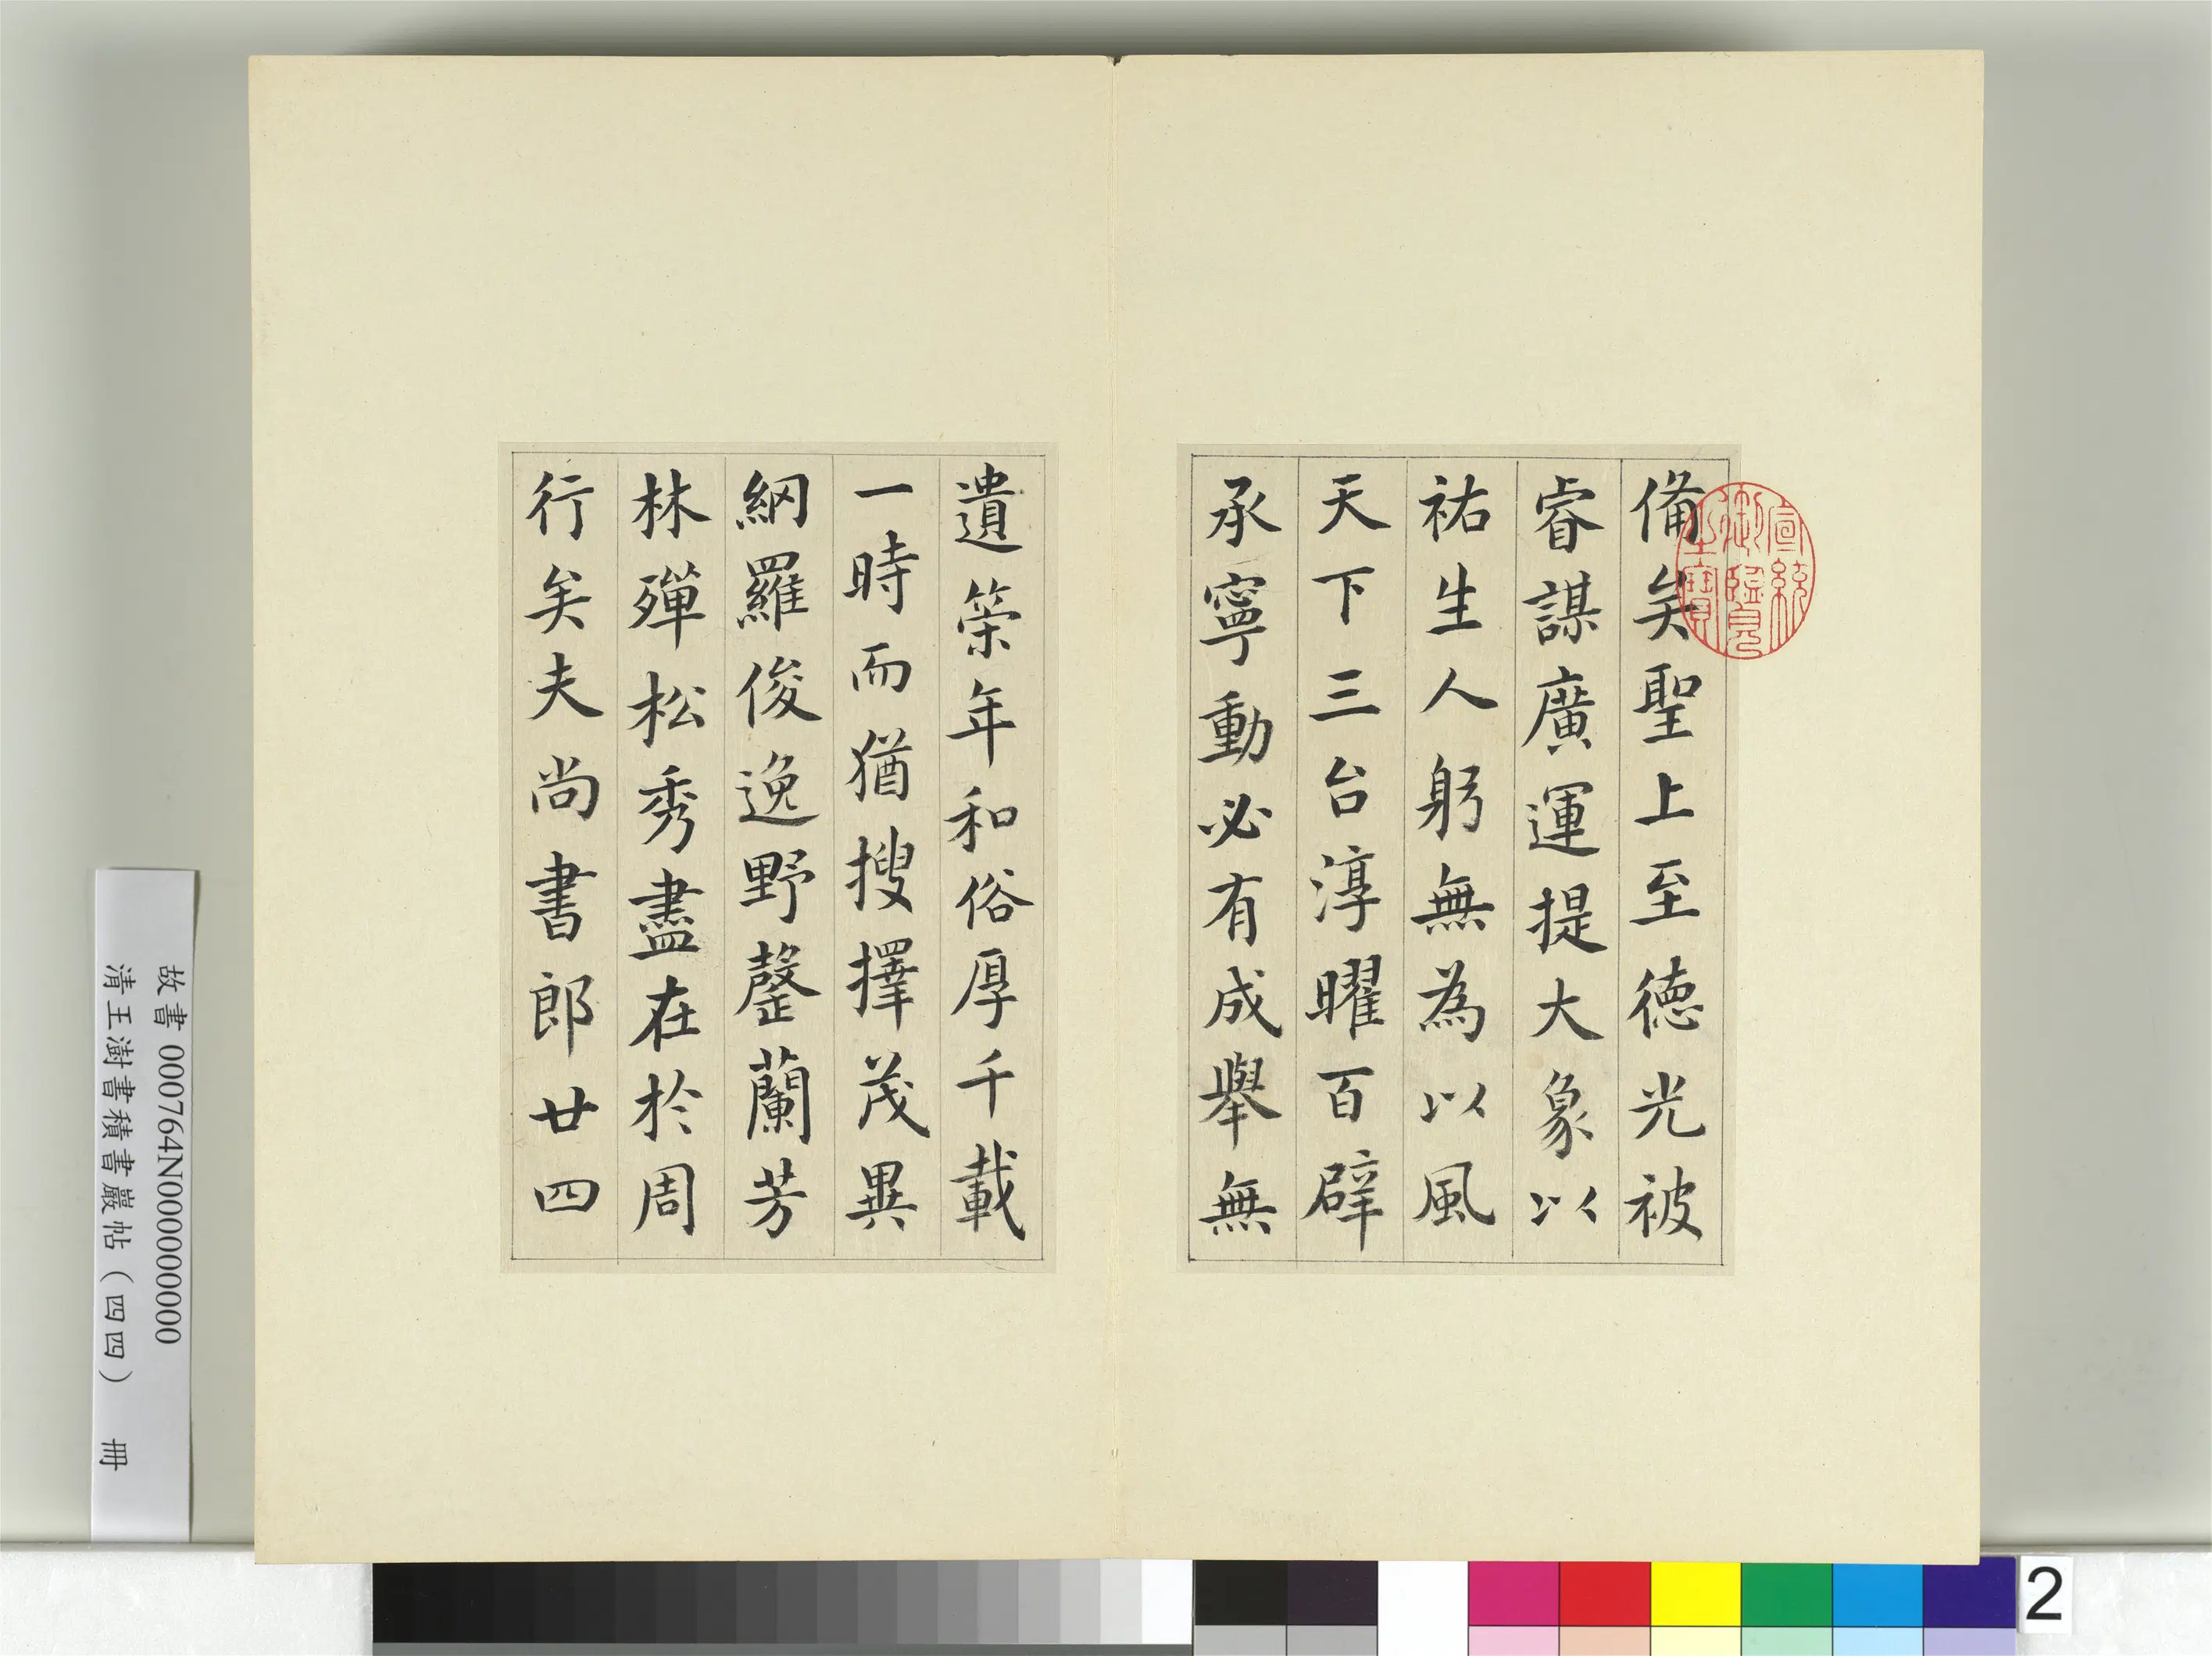 備矣聖上至德光被
睿謀廣運提大象以
祐生人躬無為以風
天下三台淳曜百辟
承寧動必有成舉無
遺筞年和俗厚千載
一時而猶搜擇茂異
網羅俊逸野罄蘭芳
林殫松秀盡在於周
行矣夫尚書郎廿四
宣統
御覽
之寶
故書 000764N000000000
清王澍書積書巖帖（四四） 冊
2